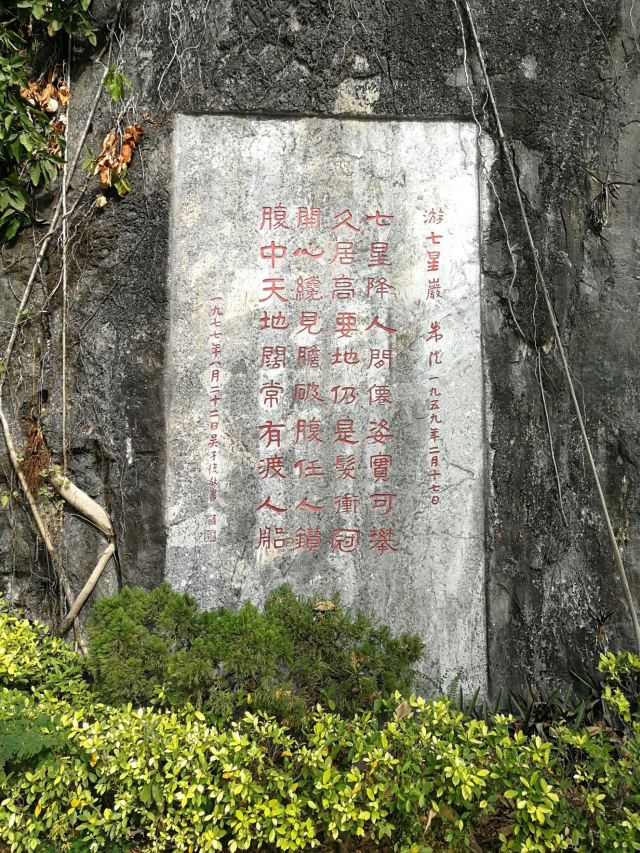 游七星巖 朱德 一九五九年二月十七日
七星降人間僊姿實可攀
久居高要地仍是髮衝冠
開心纔見膽破腹任人鑽
腹中天地闊常有渡人船
一九七七年八月二十二日吳子復